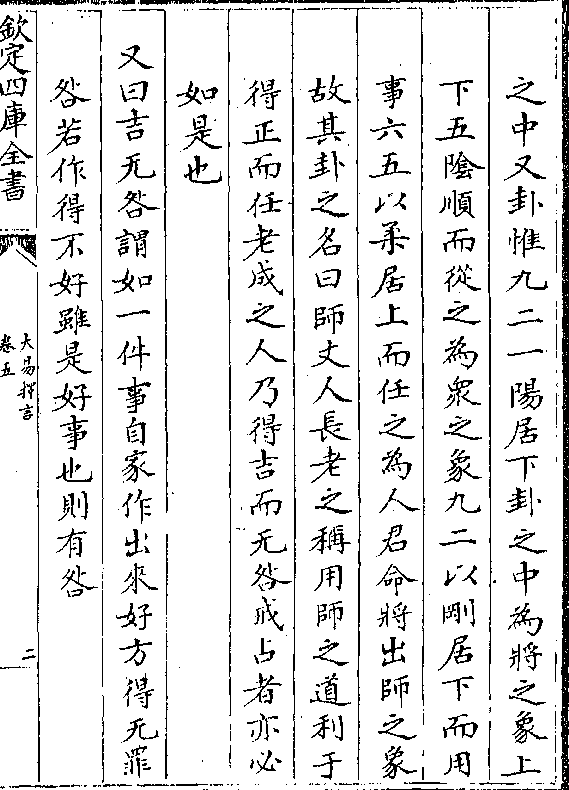 之中又卦惟九二一陽居下卦之中為將之象上
下五陰順而從之為衆之象九二以剛居下而用
事六五以柔居上而任之為人君命將出師之象
故其卦之名曰師丈人長老之稱用師之道利于
得正而任老成之人乃得吉而无咎戒占者亦必
如是也
又曰吉无咎謂如一件事自家作出來好方得无罪
咎若作得不好雖是好事也則有咎
欽定四庫全書
大易擇言
卷五
二